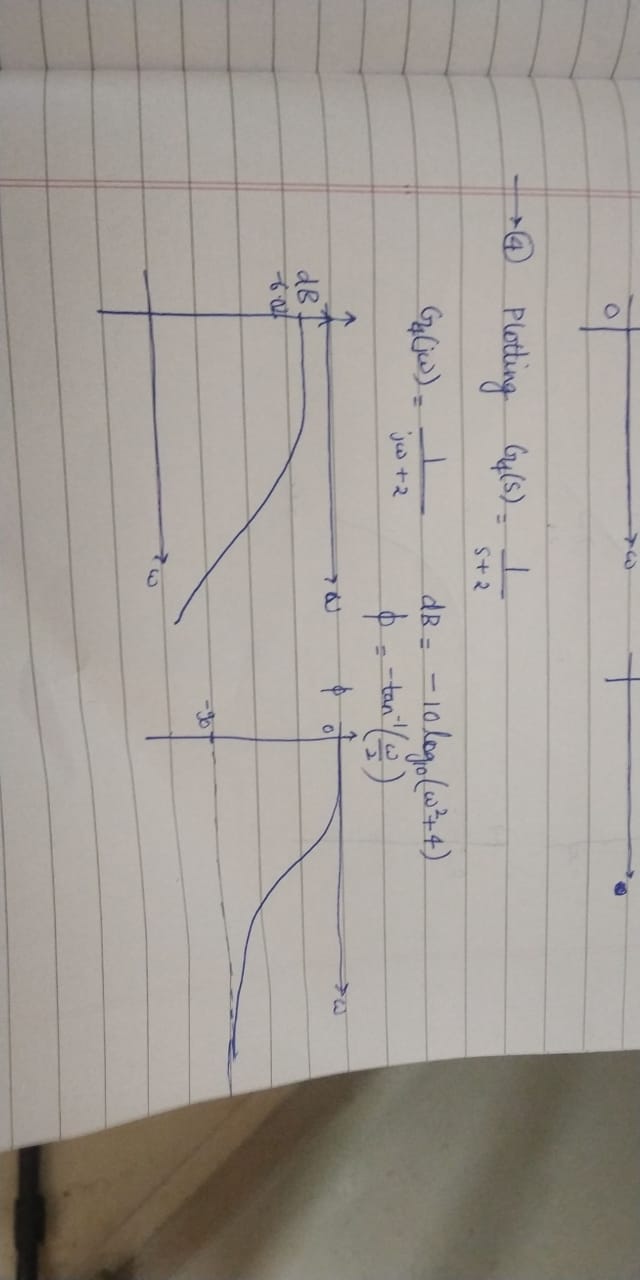 0 ω
→ ④ Plotting G₄(s) = 1/(s+2)
G₄(jω) = 1/(jω+2) dB = -10 log₁₀(ω²+4)
φ = -tan⁻¹(ω/2)
dB ω φ 0 ω
-90
ω